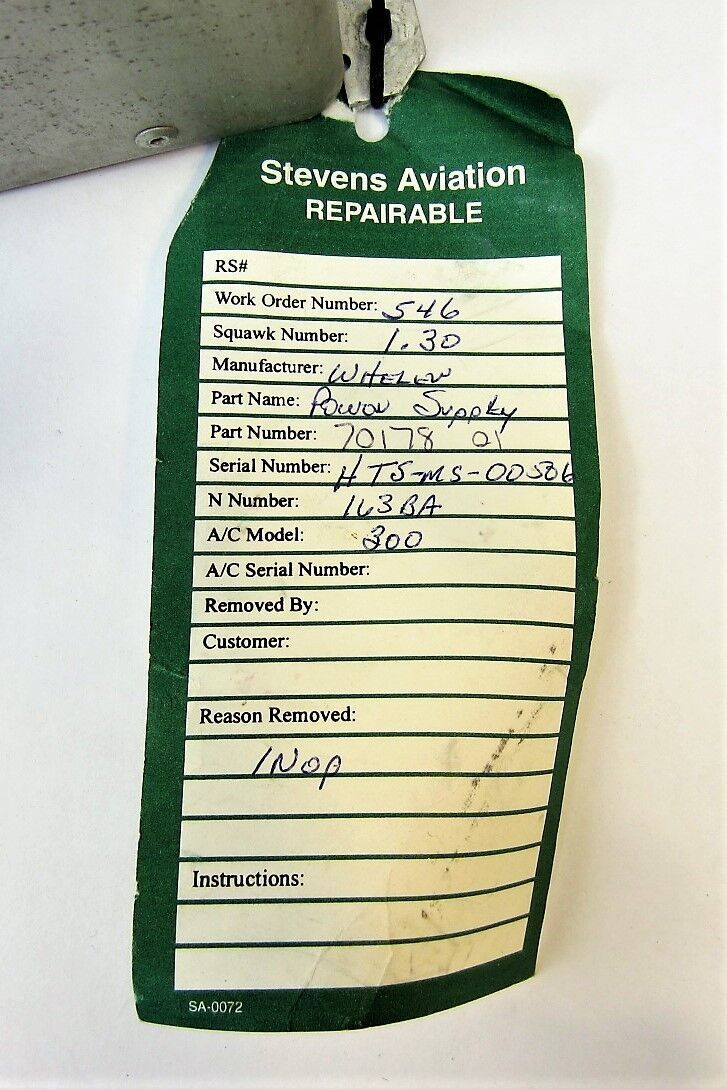 Stevens Aviation
REPAIRABLE
RS#
Work Order Number: 546
Squawk Number: 1.30
Manufacturer: WHELEN
Part Name: Power Supply
Part Number: 70178 01
Serial Number: HTS-MS-00506
N Number: 163BA
A/C Model: 300
A/C Serial Number:
Removed By:
Customer:
Reason Removed:
INOP
Instructions:
SA-0072